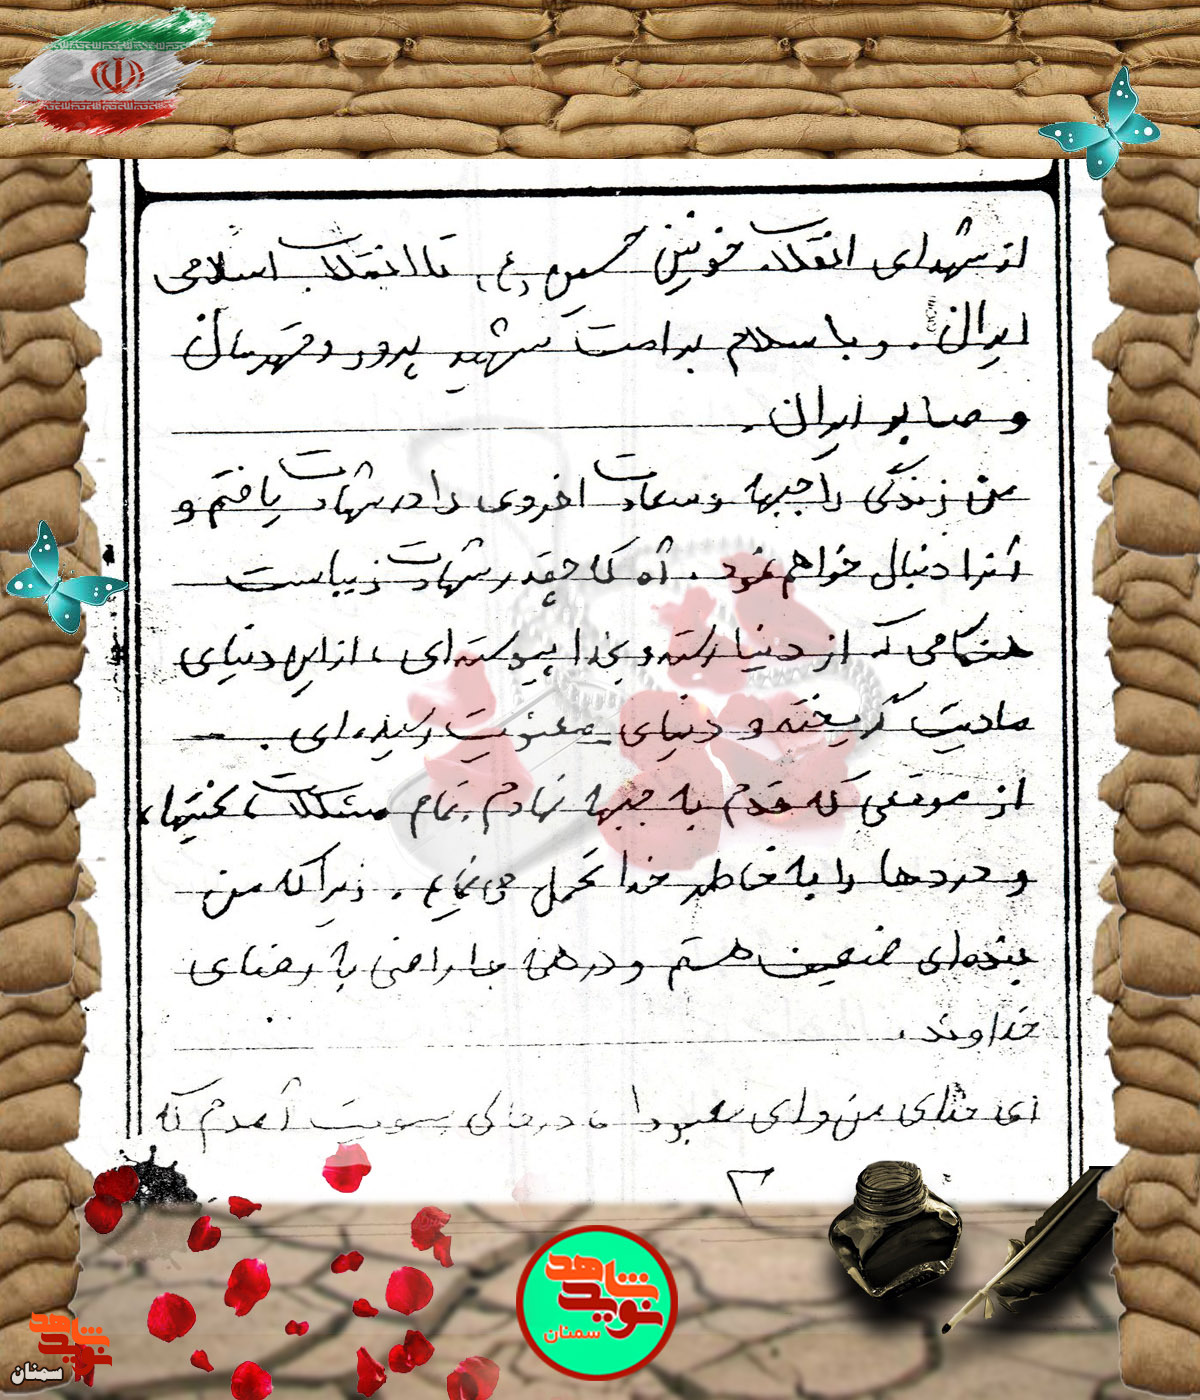 از شهدای انقلاب خونین حسین (ع) تا انقلاب اسلامی
ایران. و با سلام بر امت شهید پرور و قهرمان
و صابر ایران.
من زندگی را جبهه و سعادت اخروی را در شهادت یافتم و
آنرا دنبال خواهم نمود. آه که چقدر شهادت زیباست
هنگامی که از دنیا رسته و بخدا پیوسته‌ای، از این دنیای
مادیت گریخته و دنیای معنویت رسیده‌ای.
از موقعی که قدم به جبهه نهادم تمام مشکلات، سختیها،
و دردها را به خاطر خدا تحمل می‌نمایم. زیرا که من
بنده‌ای ضعیف هستم و راضی به رضای
خداوند.
ای خدای من و ای معبود ما در حالی بسویت آمدم که
۲
شاهد
نوید
سمنان
شاهد
نوید
سمنان